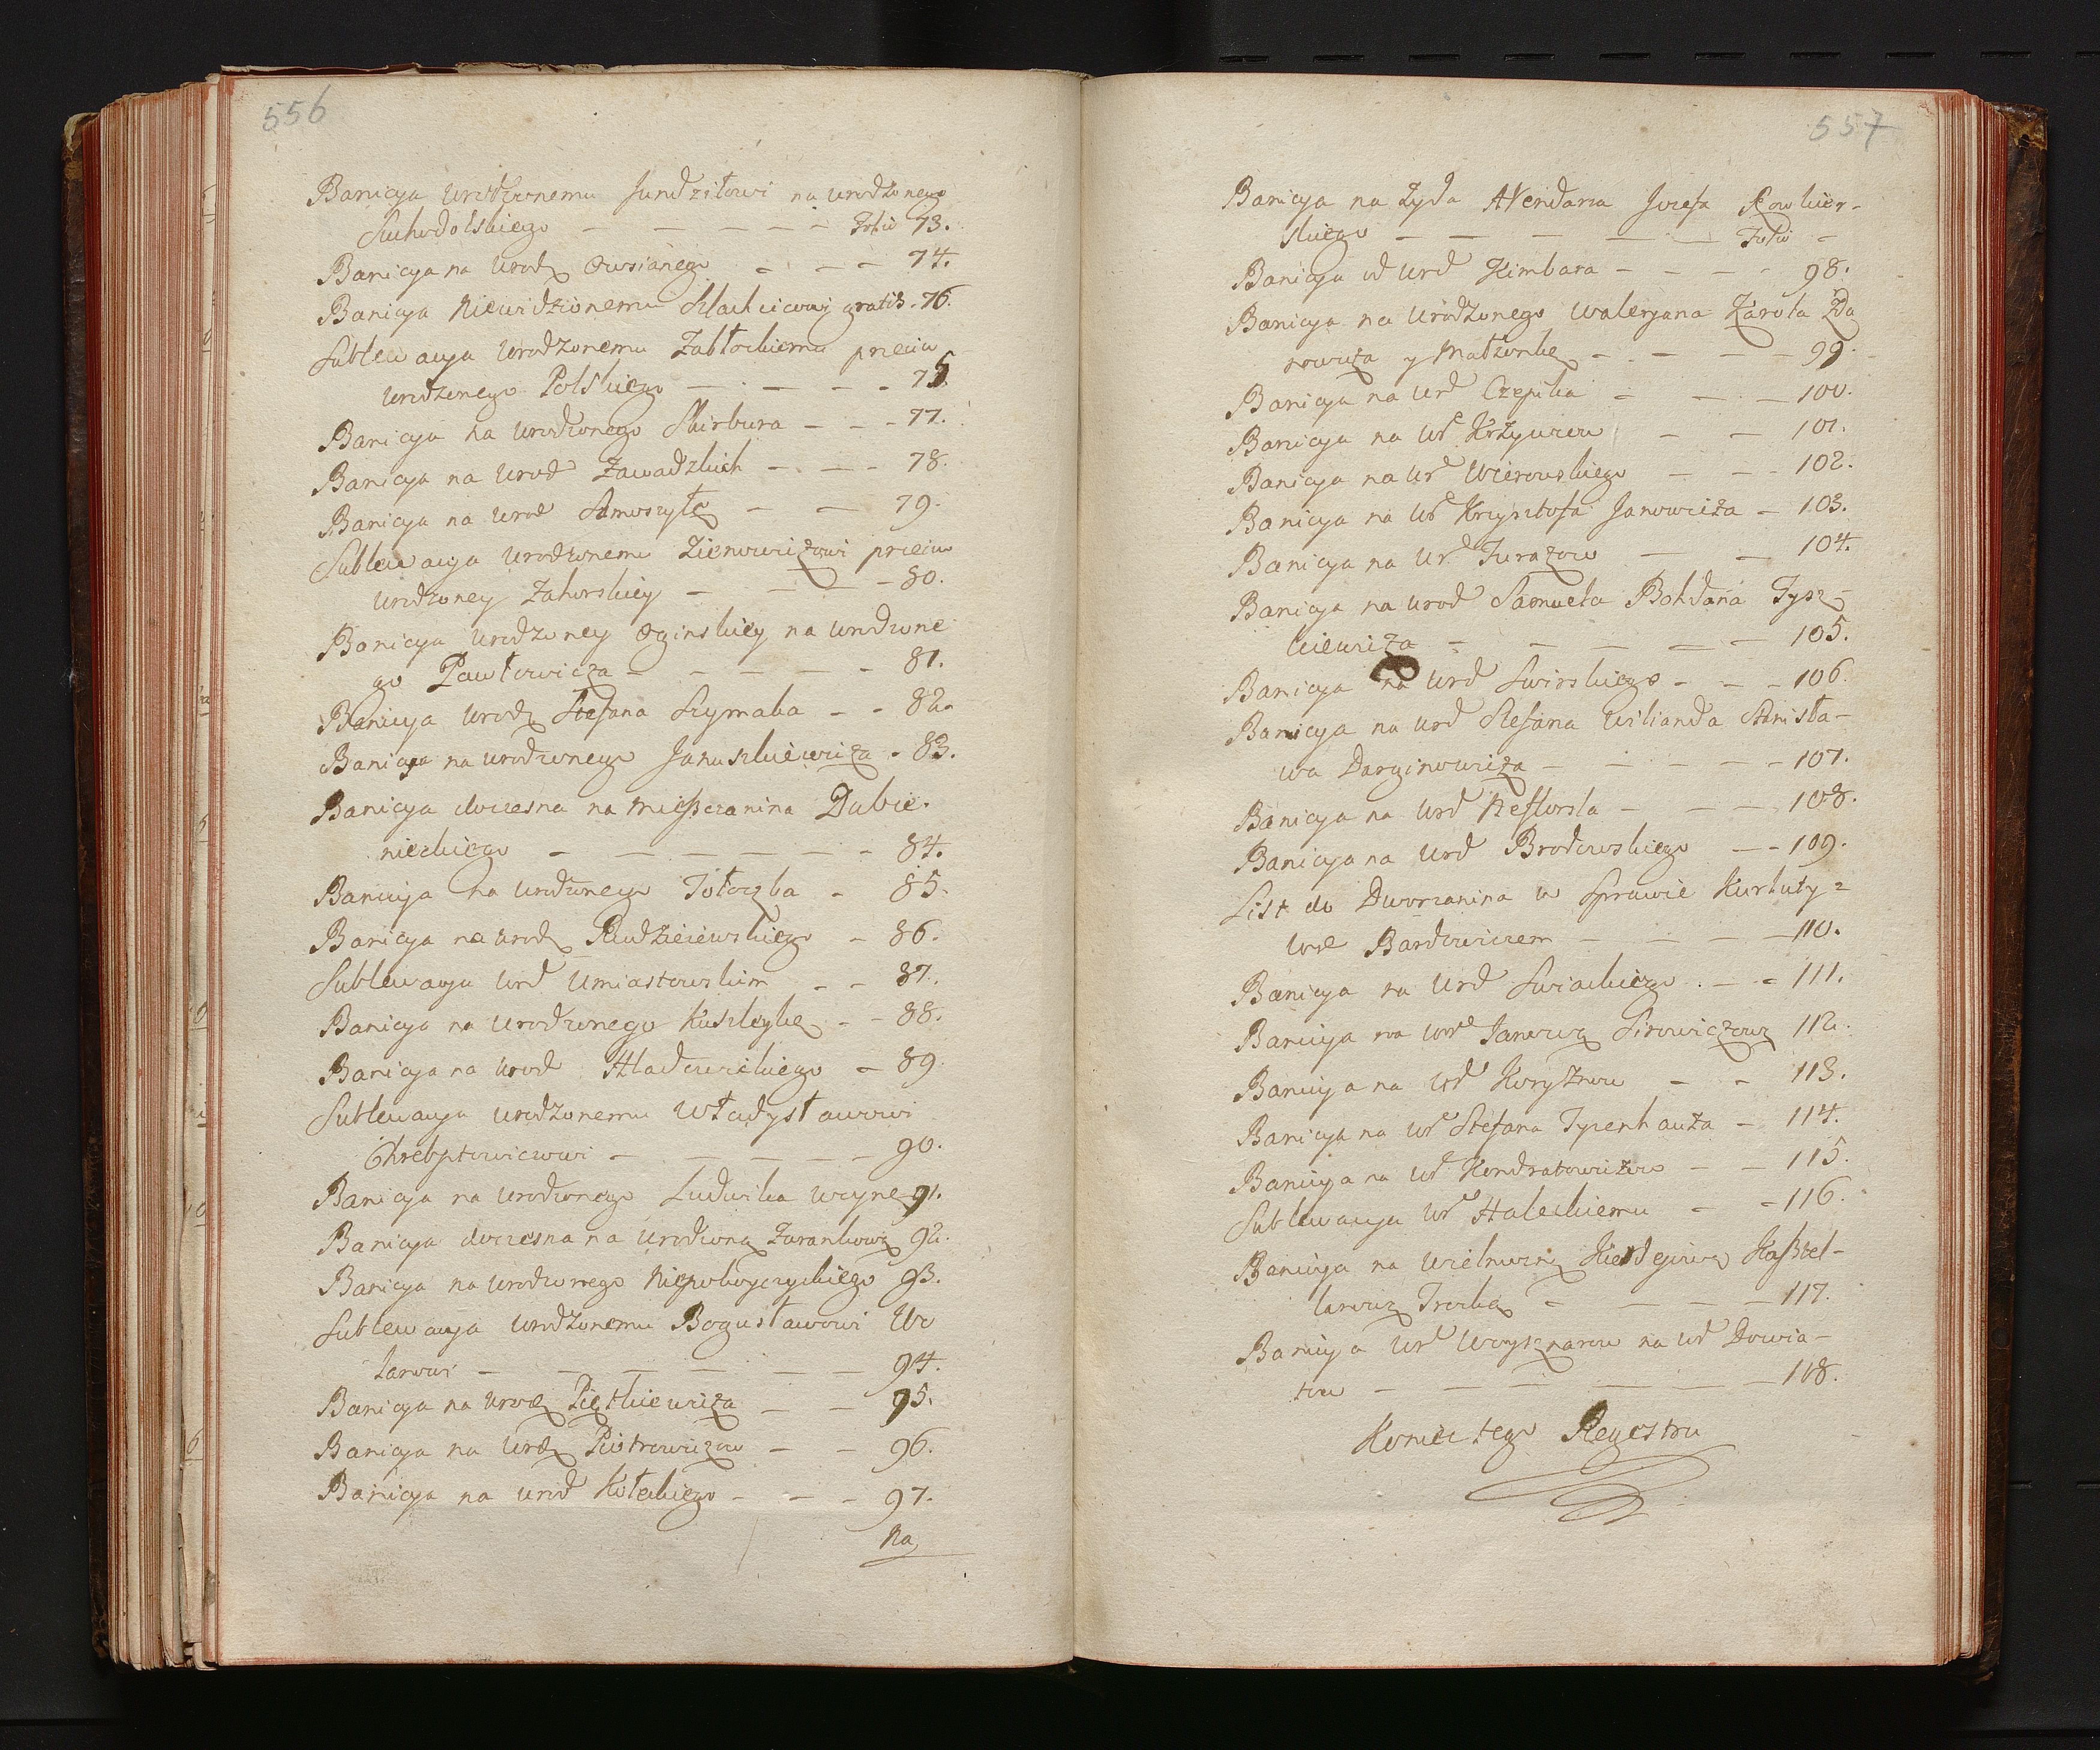 556
Banicya Urodzonemu Jundziłowi na urodzonego
Suchodolskiego - - - - - Folio 73.
Banicya na Urodz Owsianego - - - 74.
Banicya Niewidzionemu Szlachcicowi gratis - 76.
Sublewacya Urodzonemu Zabłockiemu przeciw
urodzonego Polskiego - - - - 75
Banicya na Urodzonego Skirbura - - - 77.
Banicya na Urod Zawadzkich - - - 78.
Banicya na Urod Samoszyłę - - 79.
Sublewacya Urodzonemu Zienowiczowi przeciw
Urodzoney Zahorskiey - - - 80.
Banicya Urodzoney Oginskiey na Urodzone
go Pawłowicza - - - - - 81.
Banicya Urodz Stefana Szymaka - - 82.
Banicya na urodzonego Januszkiewicza - 83.
Banicya doczesna na Mieszczanina Dubie-
nieckiego - - - - - - 84.
Banicya na Urodzonego Tołoczka - 85.
Banicya na Urodz Rudziejewskiego - 86.
Sublewacya Urd Umiastowskim - - 87.
Banicya na Urodzonego Kuszleykę - - 88.
Banicya na Urod Hladowickiego - 89
Sublewacya Urodzonemu Władysławowi
Chreptowiczowi - - - - - 90.
Banicya na Urodzonego Ludwika Woynę 91.
Banicya doczesna na Urodzoną Zarankową 92.
Banicya na Urodzonego Niepokoyczyckiego 93.
Sublewacya Urodzonemu Bogusławowi Uo
larowi - - - - - - 94.
Banicya na Urodz Piętkiewicza - - 95.
Banicya na Urdz Piotrowiczow - - 96.
Banicya na Urod Kołeckiego - - - 97.
Na
557
Banicya na Żyda Arendarza Jozefa Rowkier-
skiego - - - - - Folio -
Banicya od Urd Kimbara - - - - 98.
Banicya na Urodzonego Waleryana Karola Zda
nowicza y Małzonkę - - - - 99.
Banicya na Urd Czepika - - - 100.
Banicya na Ur Krzywcow - - 101.
Banicya na Ur Wierowskiego - - - 102.
Banicya na Ur Krzysztofa Janowicza - 103.
Banicya na Ur Jurazow - - 104.
Banicya na Urod Samuela Bohdana Tysz-
kiewicza - - - - - 105.
Banicya na Urd Swirskiego - - - 106.
Banicya na Urd Stefana Wilianda Stanisła-
wa Darginowicza - - - - - 107.
Banicya na Urd Neftorsla - - - 108.
Banicya na Urd Brodowskiego - - 109.
List do Dworzanina w Sprawie Kurluty z
Urd Bardowiczem - - - - 110.
Banicya na Urd Swiackiego - - - 111.
Banicya na Urd Janową Sirowiczową 112.
Banicya na Urd Korytkow - - 113.
Banicya na Ur Stefana Tyzenhauza - 114.
Banicya na Ur Kondratowiczow - - 115.
Sublewacya Ur Haleckiemu - - 116.
Banicya na Wielmożną Kierdejową Kasztel-
lanową Trocką - - - - 117.
Banicya Ur Woysznarow na Ur Dowia-
tow - - - - - - 118.
Koniec tego Regestru